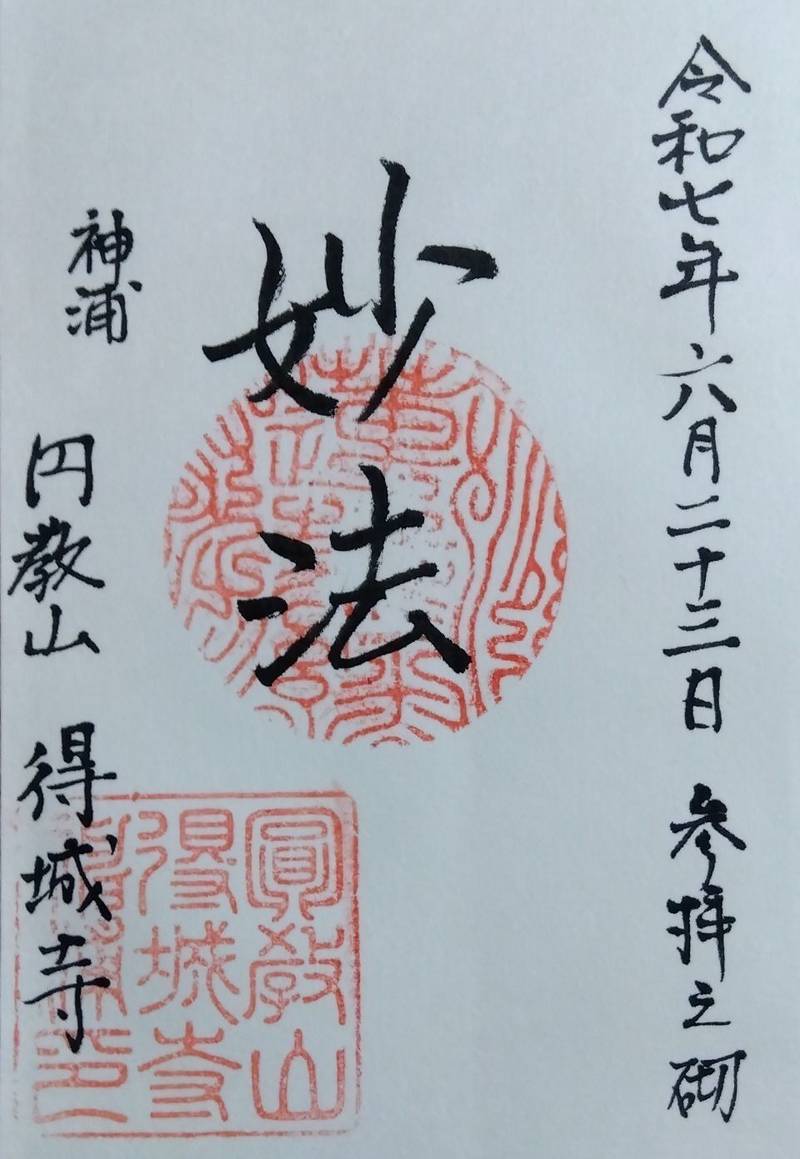 令和七年六月二十三日 参拝之砌
妙法
神浦
円教山 得城寺
圓教山
得城寺